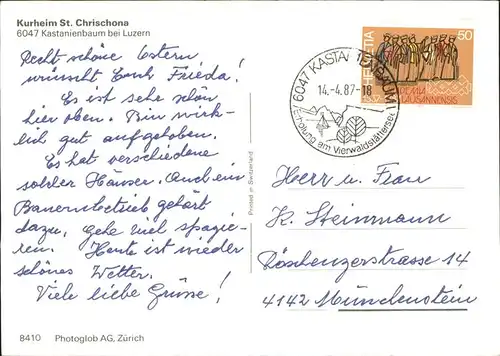 Kurheim St. Chrischona
6047 Kastanienbaum bei Luzern
Recht schöne Ostern
wünscht Euch Frieda!
Es ist sehr schön
hier oben. Bin wirk-
lich gut aufgehoben.
Es hat verschiedene
solcher Häuser. Auch ein
Bauernbetrieb gehört
dazu, gehe viel spazie-
ren. Heute ist wieder
schönes Wetter.
Viele liebe Grüsse!
8410 Photoglob AG, Zürich
Printed in Switzerland
6047 KASTANIENBAUM
14.-4.87-18
Erholung am Vierwaldstättersee
HELVETIA
50
LAUSANNENSIS
Herr u. Frau
K. Steinmann
Röschenzerstrasse 14
4142 Münchenstein